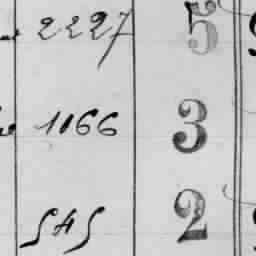 2227 5
1166 3
545 2